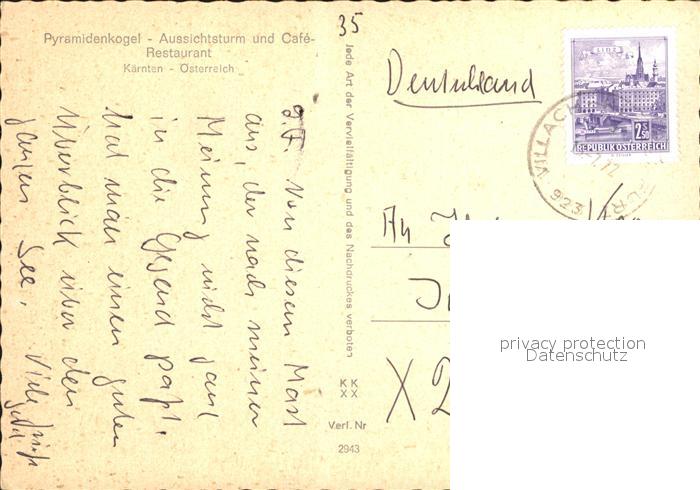 Pyramidenkogel - Aussichtsturm und Café-
Restaurant
Kärnten - Österreich
35
Jede Art der Vervielfältigung und des Nachdruckes verboten
Deutschland
LINZ
2.50
REPUBLIK ÖSTERREICH
VILLACH
.72
923
Von diesem Mast
aus, der nach meiner
Meinung nicht ganz
in die Gegend paßt,
hat man einen guten
Überblick über den
ganzen See. Viele
An
X 2
K K
X X
Verl. Nr
2943
privacy protection
Datenschutz